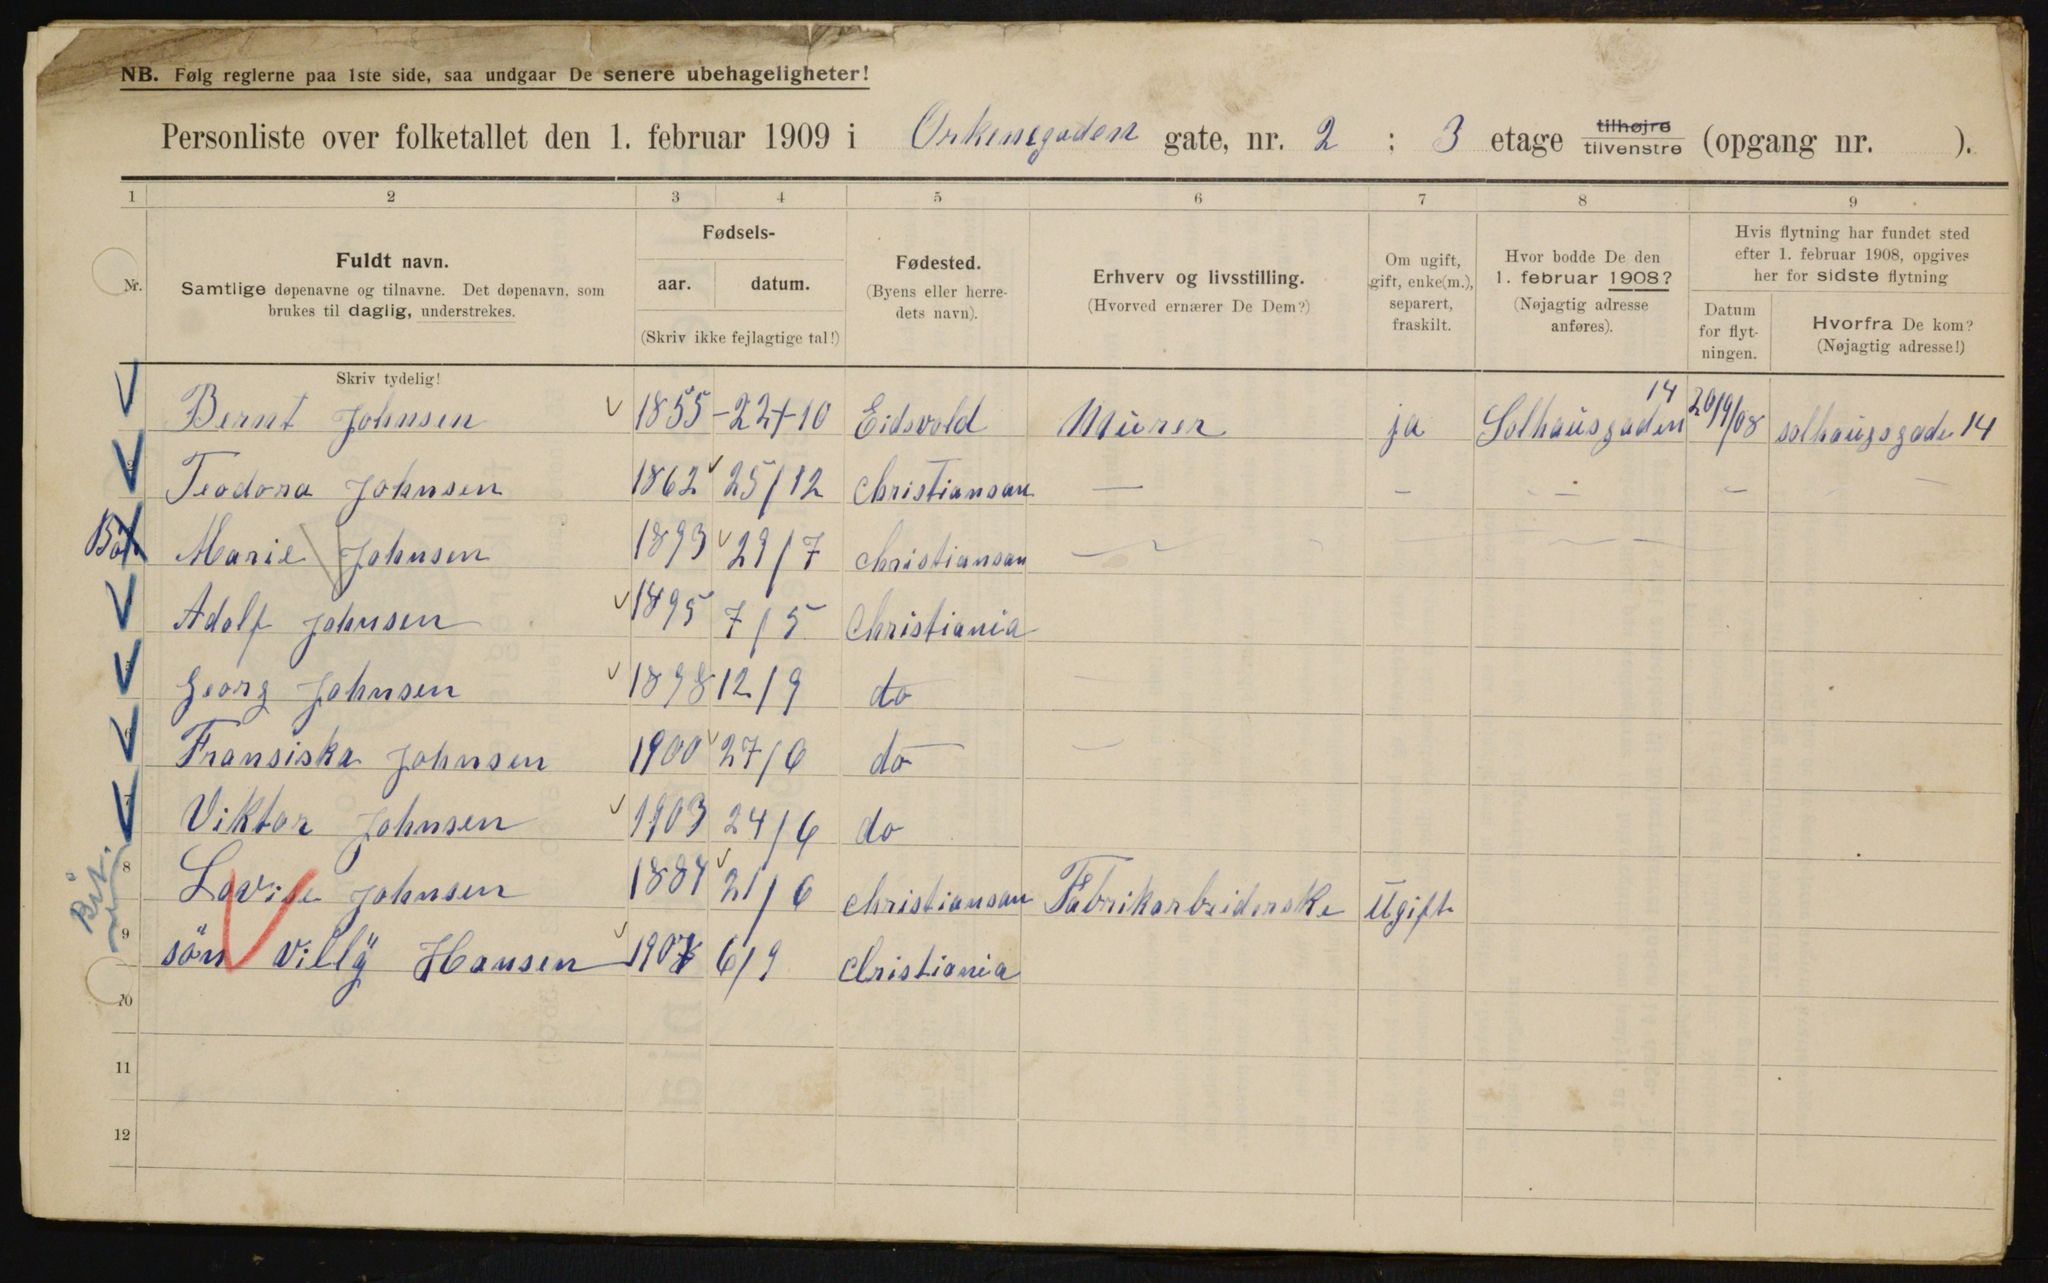 NB. Følg reglerne paa 1ste side, saa undgaar De senere ubehageligheter!
Personliste over folketallet den 1. februar 1909 i Orkenegaden gate, nr. 2 : 3 etage tilhøjre tilvenstre (opgang nr. ).
1 2 3 4 5 6 7 8 9
Nr.
Fuldt navn.
Samtlige døpenavne og tilnavne. Det døpenavn, som
brukes til daglig, understrekes.
Skriv tydelig!
Fødsels-
aar. datum.
(Skriv ikke fejlagtige tal!)
Fødested.
(Byens eller herre-
dets navn).
Erhverv og livsstilling.
(Hvorved ernærer De Dem?)
Om ugift,
gift, enke(m.),
separert,
fraskilt.
Hvor bodde De den
1. februar 1908?
(Nøjagtig adresse
anføres).
Hvis flytning har fundet sted
efter 1. februar 1908, opgives
her for sidste flytning
Datum
for flyt-
ningen.
Hvorfra De kom?
(Nøjagtig adresse!)
Bernt Johnsen 1855 - 22/10 Eidsvold Murer ja Solhausgaden 14 20/9/08 solhaugsgade 14
2 Teodora Johnsen 1862 25/12 Christiansan — – – – –
Marie Johnsen 1893 29/7 Christiansan —
Adolf Johnsen 1895 7/5 Christiania
5 Georg Johnsen 1898 12/9 do
6 Fransiska Johnsen 1900 27/6 do
7 Viktor Johnsen 1903 24/6 do
8 Lovise Johnsen 1887 21/6 Christiansan Fabrikarbeiderske Ugift
9 sön Villÿ Hansen 1907 6/9 Christiania
10
11
12